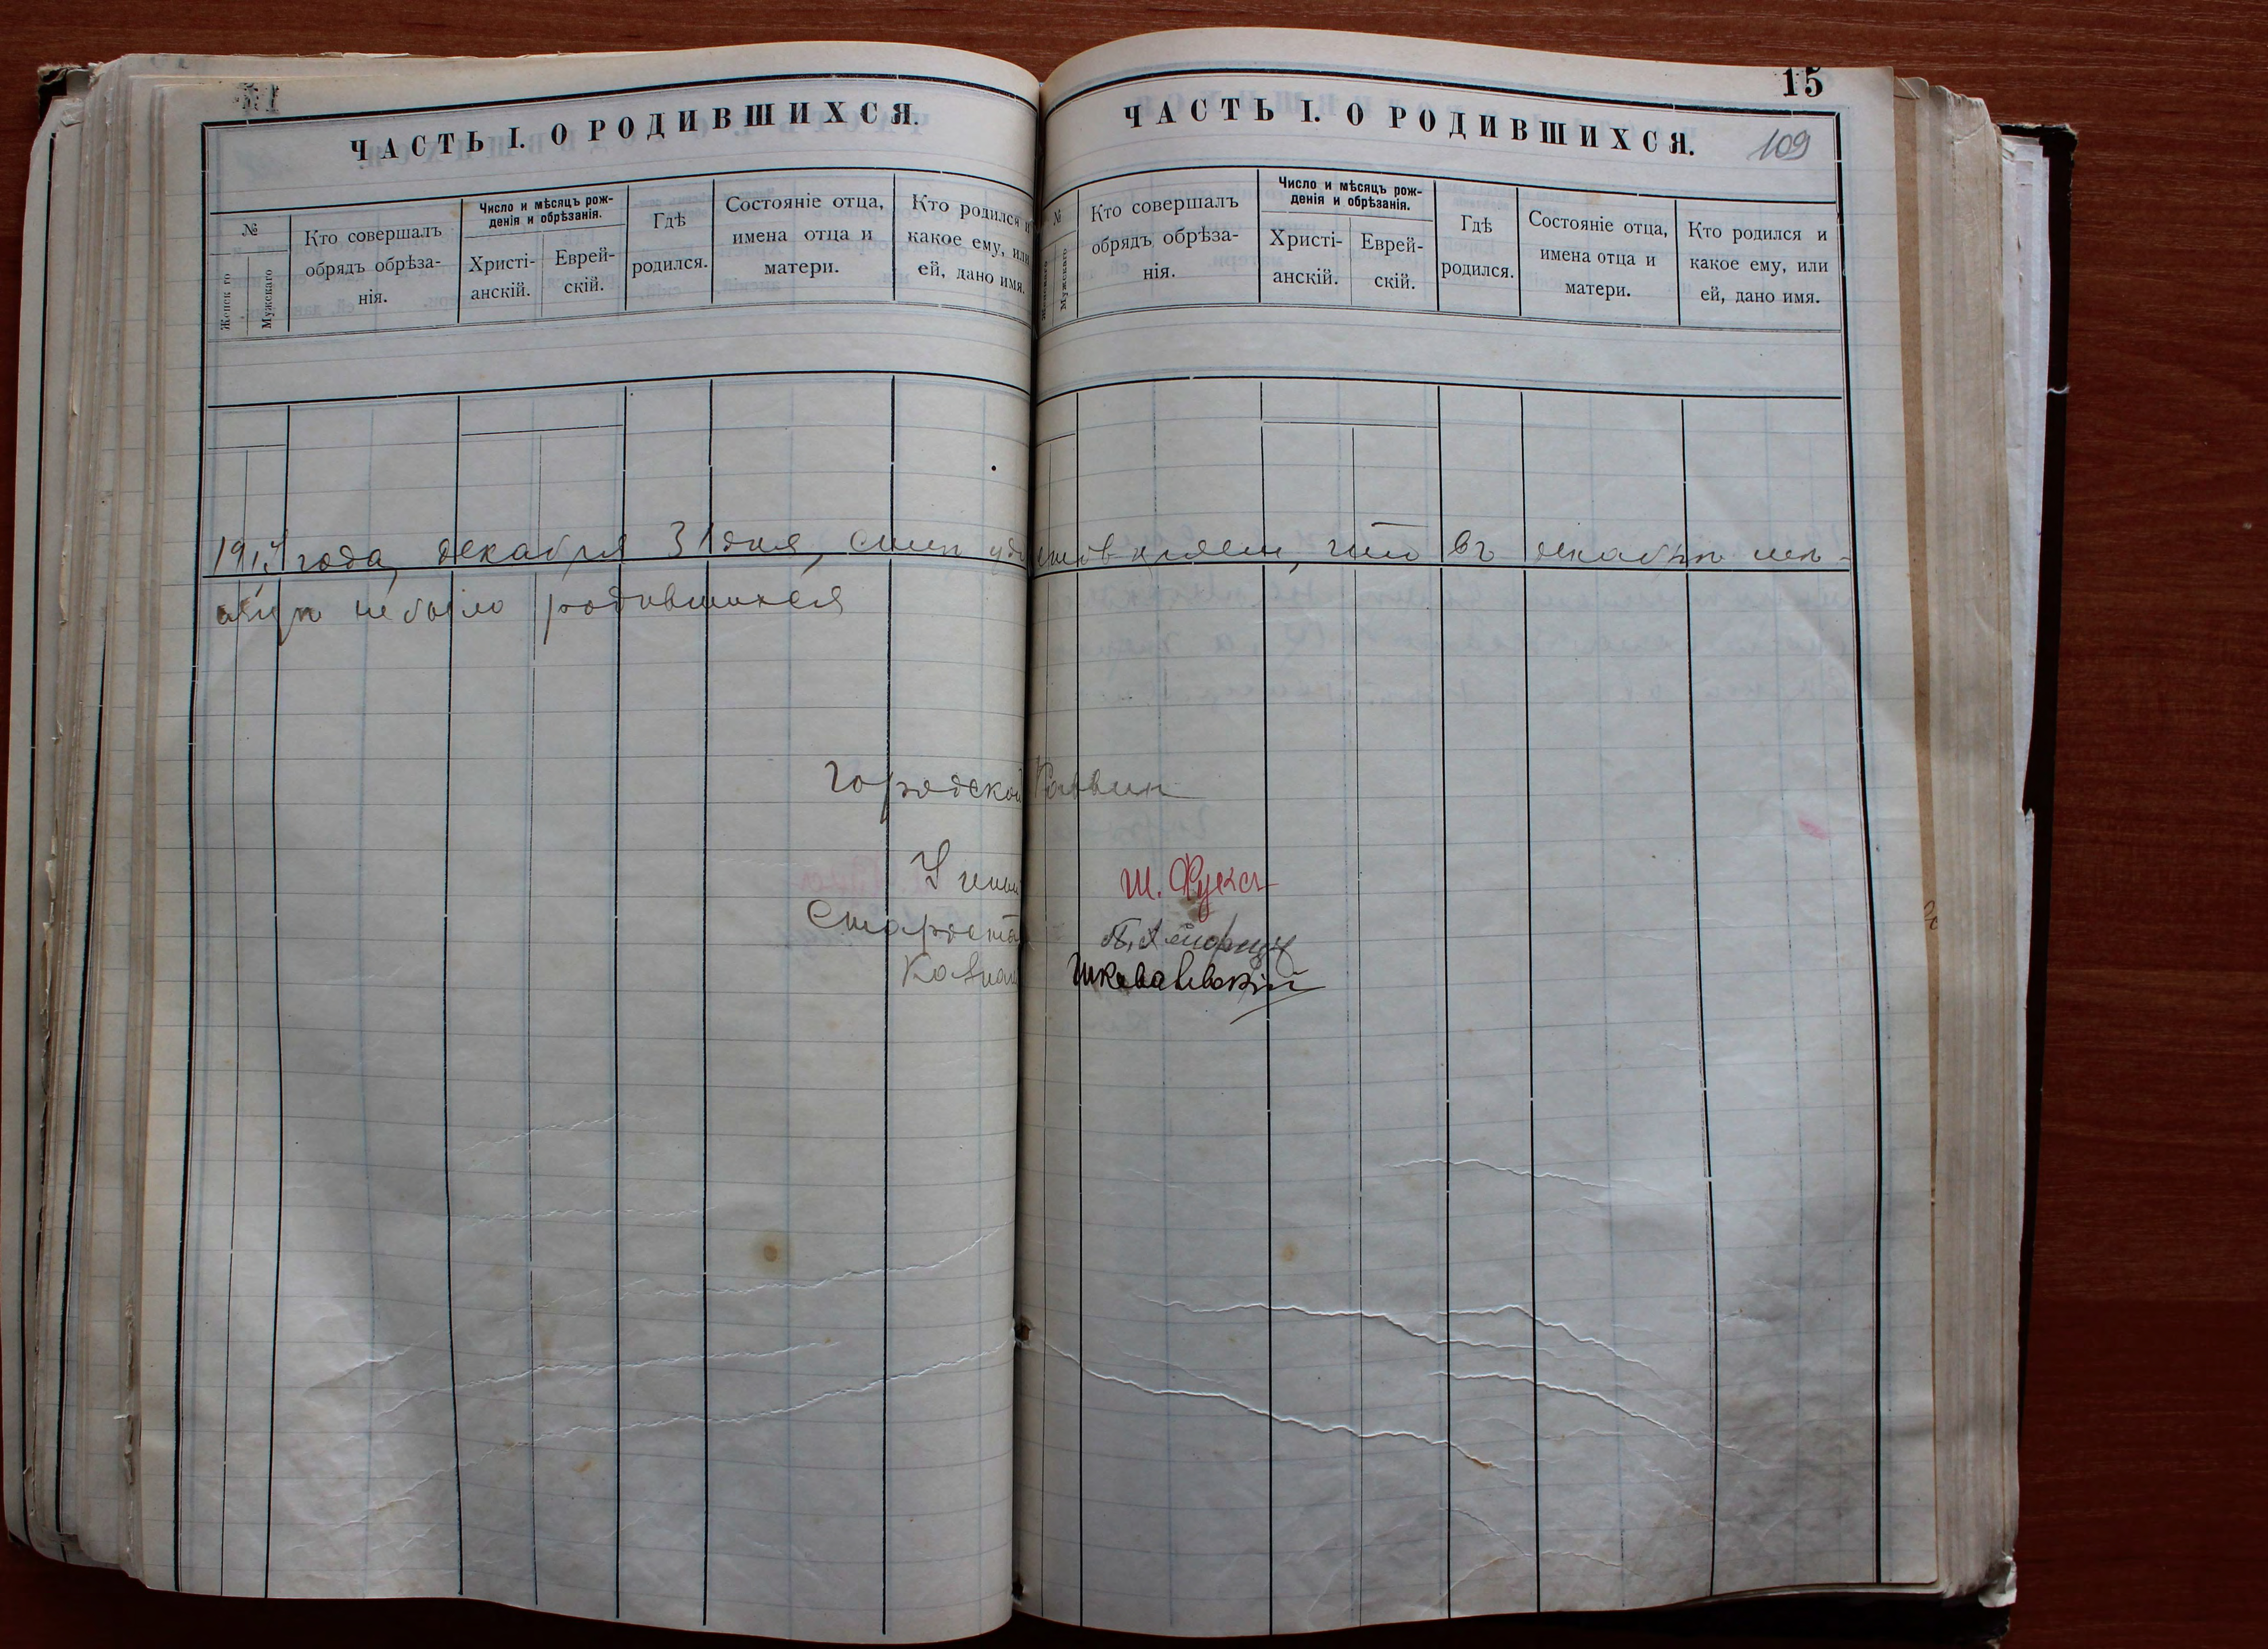 15
ЧАСТЬ I. О РОДИВШИХСЯ.
№
Женского
Мужскаго
Кто совершалъ
обрядъ обрѣза-
нія.
Число и мѣсяцъ рож-
денія и обрѣзанія.
Христі-
анскій.
Еврей-
скій.
Гдѣ
родился.
Состояніе отца,
имена отца и
матери.
Кто родился и
какое ему, или
ей, дано имя.
ЧАСТЬ I. О РОДИВШИХСЯ.
109
№
Женскаго
Мужскаго
Кто совершалъ
обрядъ обрѣза-
нія.
Число и мѣсяцъ рож-
денія и обрѣзанія.
Христі-
анскій.
Еврей-
скій.
Гдѣ
родился.
Состояніе отца,
имена отца и
матери.
Кто родился и
какое ему, или
ей, дано имя.
года, декабря 31 дня, симъ удостовѣряем, что въ декабрѣ мѣ-
сяцѣ не было родившихся
Городской Раввин
Учен Ш. Фуксъ
Староста
Казнач